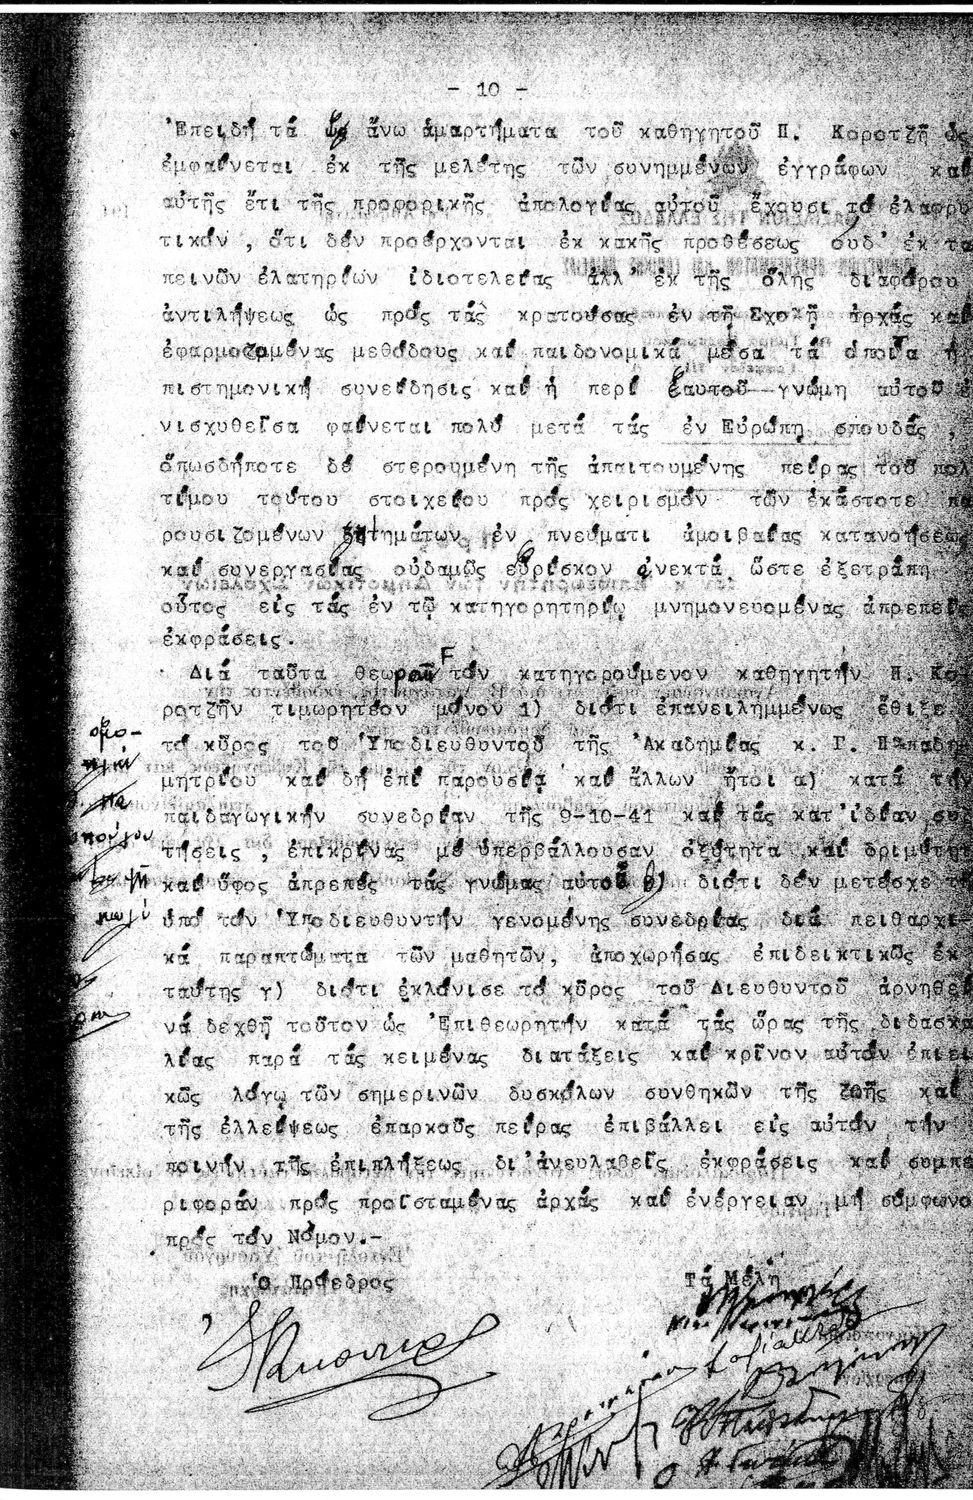 - 10 -
Ἐπειδή τά ὡς ἄνω ἁμαρτήματα τοῦ καθηγητοῦ Π. Κοροτζῆ ὡς
ἐμφαίνεται ἐκ τῆς μελέτης τῶν συνημμένων ἐγγράφων καί
αὐτῆς ἔτι τῆς προφορικῆς ἀπολογίας αὐτοῦ ἔχουσι τό ἐλαφρυ
τικόν , ὅτι δέν προέρχονται ἐκ κακῆς προθέσεως οὐδ' ἐκ τα
πεινῶν ἐλατηρίων ἰδιοτελείας ἀλλ' ἐκ τῆς ὅλης διαφόρου
ἀντιλήψεως ὡς πρός τάς κρατούσας ἐν τῇ Σχολῇ ἀρχάς καί
ἐφαρμοζομένας μεθόδους καί παιδονομικά μέσα τά ὁποῖα ἡ
πιστημονική συνείδησις καί ἡ περί ἑαυτοῦ γνώμη αὐτοῦ ἐ
νισχυθεῖσα φαίνεται πολύ μετά τάς ἐν Εὐρώπῃ σπουδάς ,
ὁπωσδήποτε δέ στερουμένη τῆς ἀπαιτουμένης πείρας τοῦ πολ
τίμου τούτου στοιχείου πρός χειρισμόν τῶν ἑκάστοτε πα
ρουσιζομένων ζητημάτων ἐν πνεύματι ἀμοιβαίας κατανοήσεως
καί συνεργασίας οὐδαμῶς εὕρισκον ἀνεκτά ὥστε ἐξετράπη
οὗτος εἰς τάς ἐν τῷ κατηγορητηρίῳ μνημονευομένας ἀπρεπεῖς
ἐκφράσεις.
Διά ταῦτα θεωρεῖ τόν κατηγορούμενον καθηγητήν Π. Κο-
ροτζῆν τιμωρητέον μόνον 1) διότι ἐπανειλημμένως ἔθιξε
τό κῦρος τοῦ Ὑποδιευθυντοῦ τῆς Ἀκαδημίας κ. Γ. Παπαδη
μητρίου καί δή ἐπί παρουσίᾳ καί ἄλλων ἤτοι α) κατά τήν
παιδαγωγικήν συνεδρίαν τῆς 9-10-41 καί τάς κατ'ἰδίαν συζ
τήσεις , ἐπικρίνας μέ ὑπερβάλλουσαν ὀξύτητα καί δριμύτητ
καί ὕφος ἀπρεπές τάς γνώμας αὐτοῦ β) διότι δέν μετέσχε τῆ
ὑπό τόν Ὑποδιευθυντήν γενομένης συνεδρίας διά πειθαρχι-
κά παραπτώματα τῶν μαθητῶν, ἀποχωρήσας ἐπιδεικτικῶς ἐκ
ταύτης γ) διότι ἐκλόνισε τό κῦρος τοῦ Διευθυντοῦ ἀρνηθεί
νά δεχθῇ τοῦτον ὡς Ἐπιθεωρητήν κατά τάς ὥρας τῆς διδασκα
λίας παρά τάς κειμένας διατάξεις καί κρῖνον αὐτόν ἐπιει
κῶς λόγῳ τῶν σημερινῶν δυσκόλων συνθηκῶν τῆς ζωῆς καί
τῆς ἐλλείψεως ἐπαρκοῦς πείρας ἐπιβάλλει εἰς αὐτόν τήν
ποινήν τῆς ἐπιπλήξεως δι'ἀνευλαβεῖς ἐκφράσεις καί συμπε
ριφοράν πρός προϊσταμένας ἀρχάς καί ἐνέργειαν μή σύμφωνο
πρός τόν Νόμον.-
Ὁ Πρόεδρος Τά Μέλη